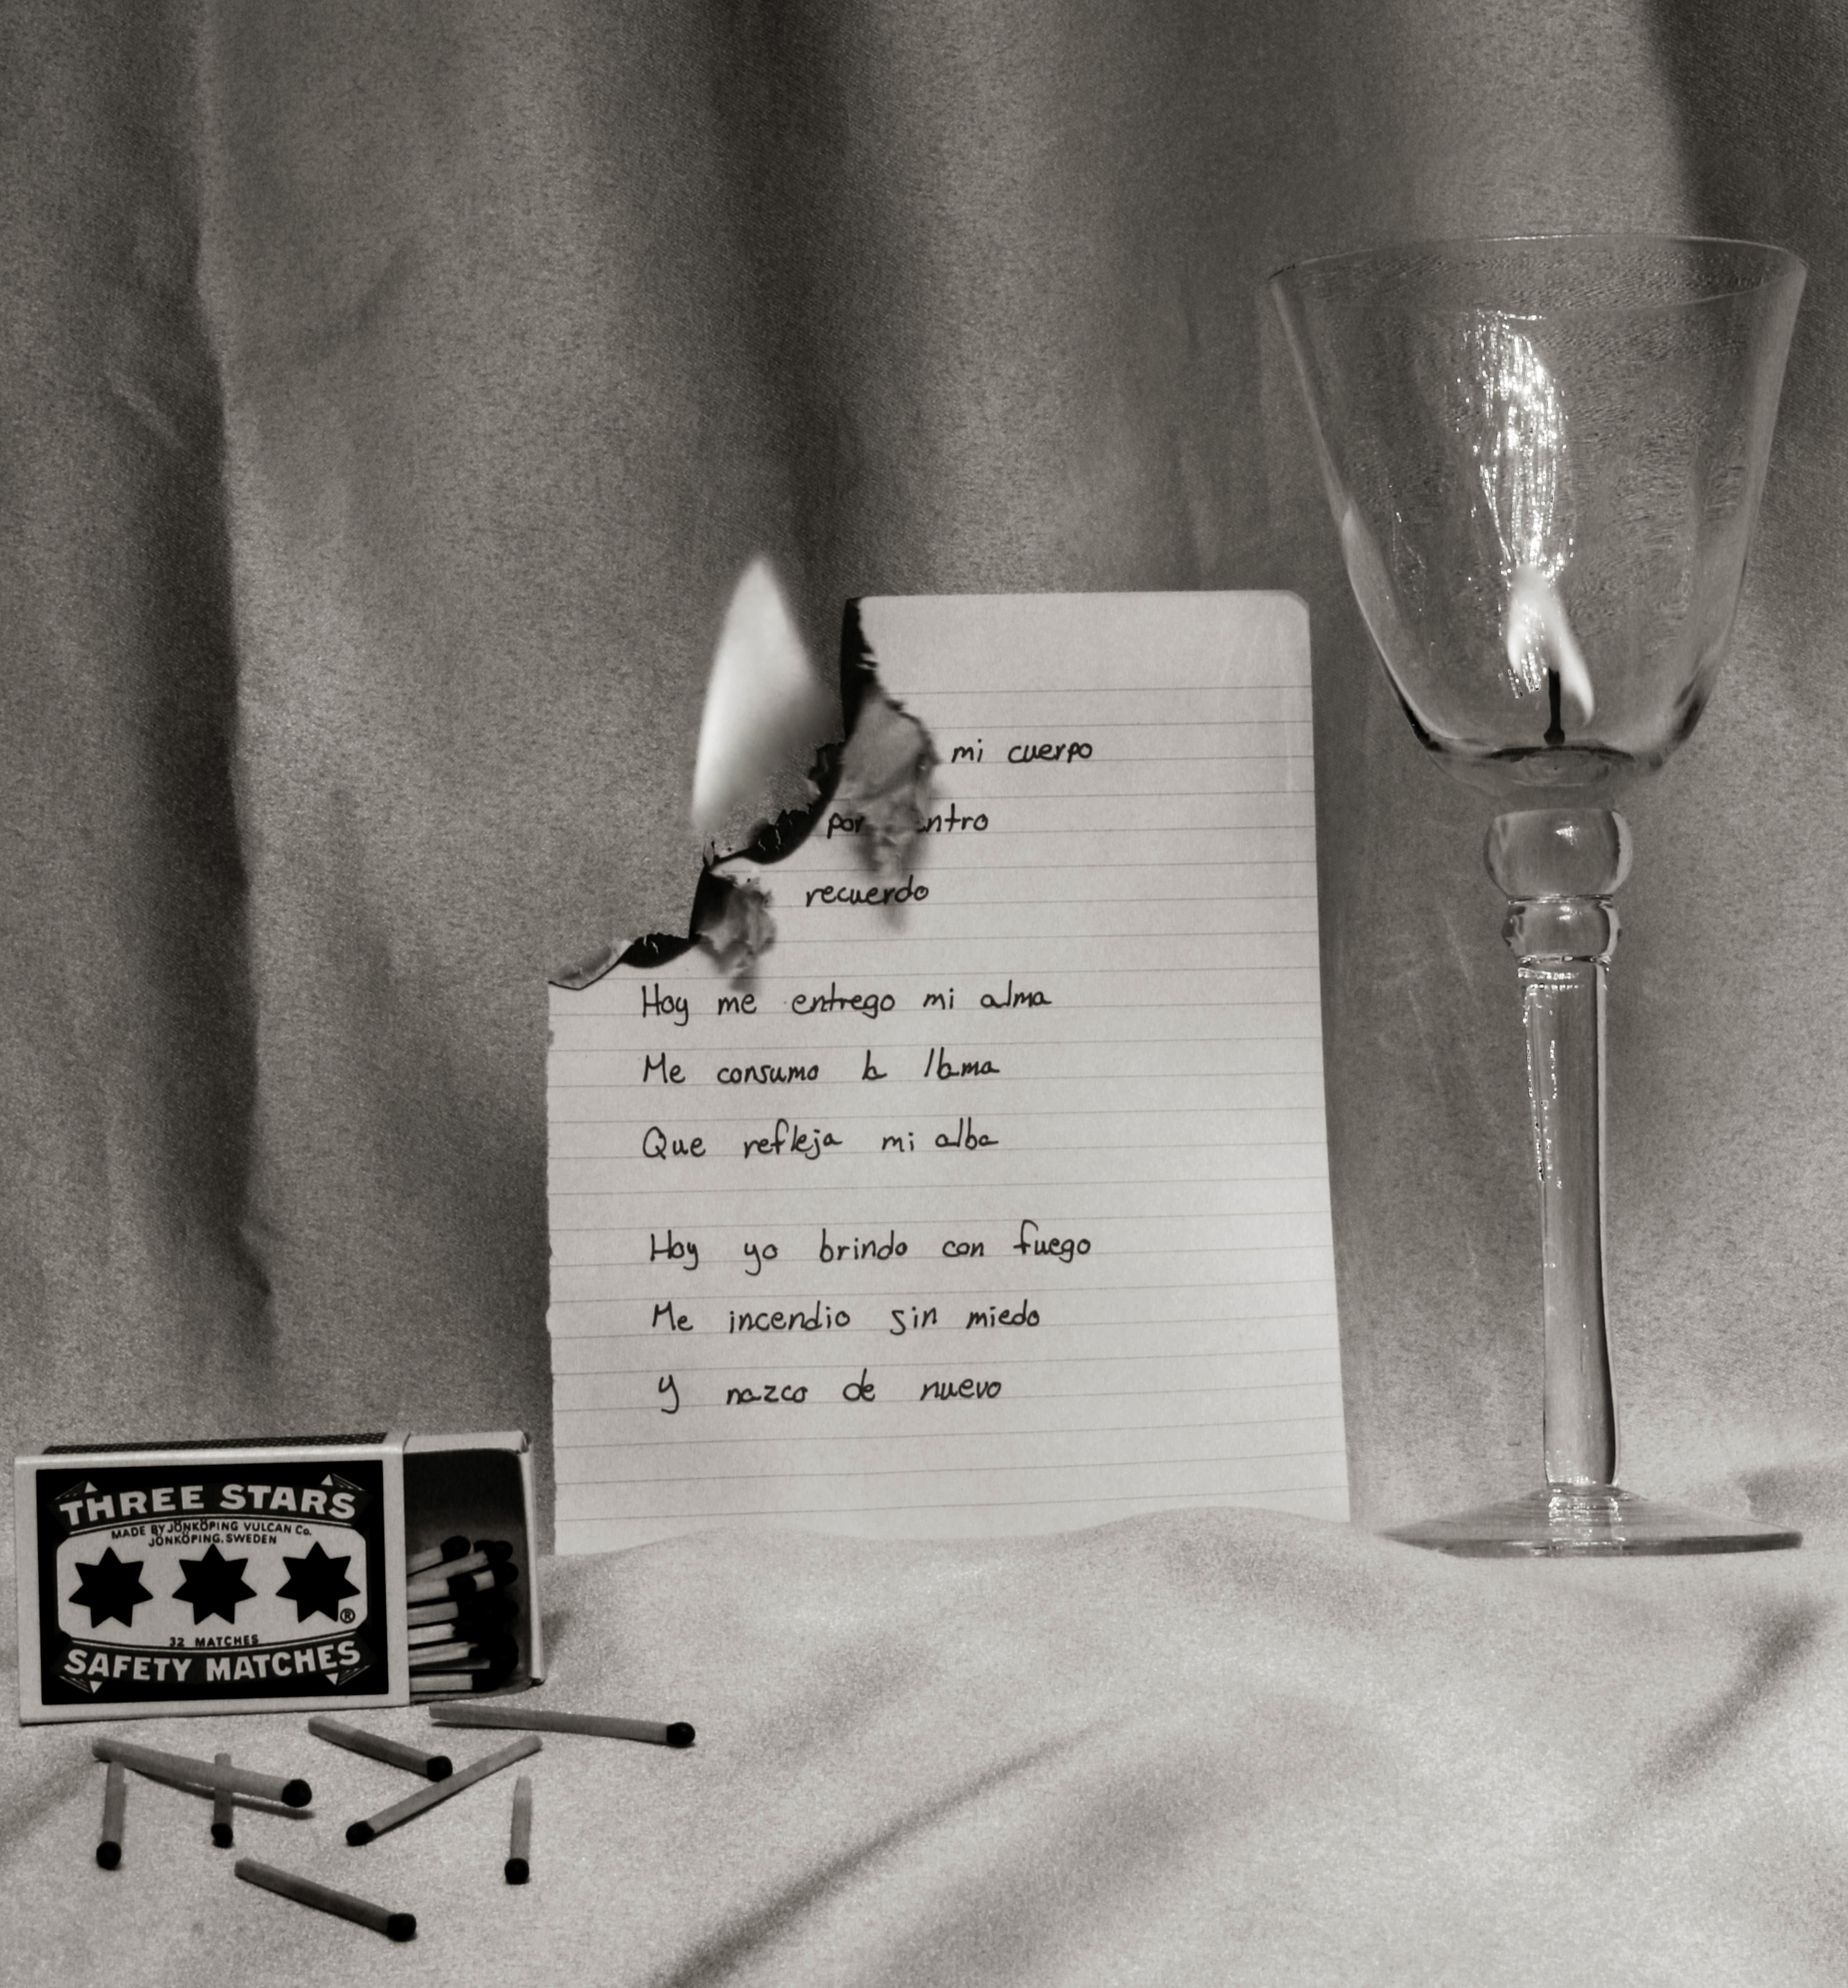 mi cuerpo
por ntro
recuerdo
Hoy me entrego mi alma
Me consumo la llama
Que refleja mi alba
Hoy yo brindo con fuego
Me incendio sin miedo
y nazco de nuevo
THREE STARS
MADE BY JÖNKÖPING VULCAN Co.
JÖNKÖPING, SWEDEN
®
32 MATCHES
SAFETY MATCHES